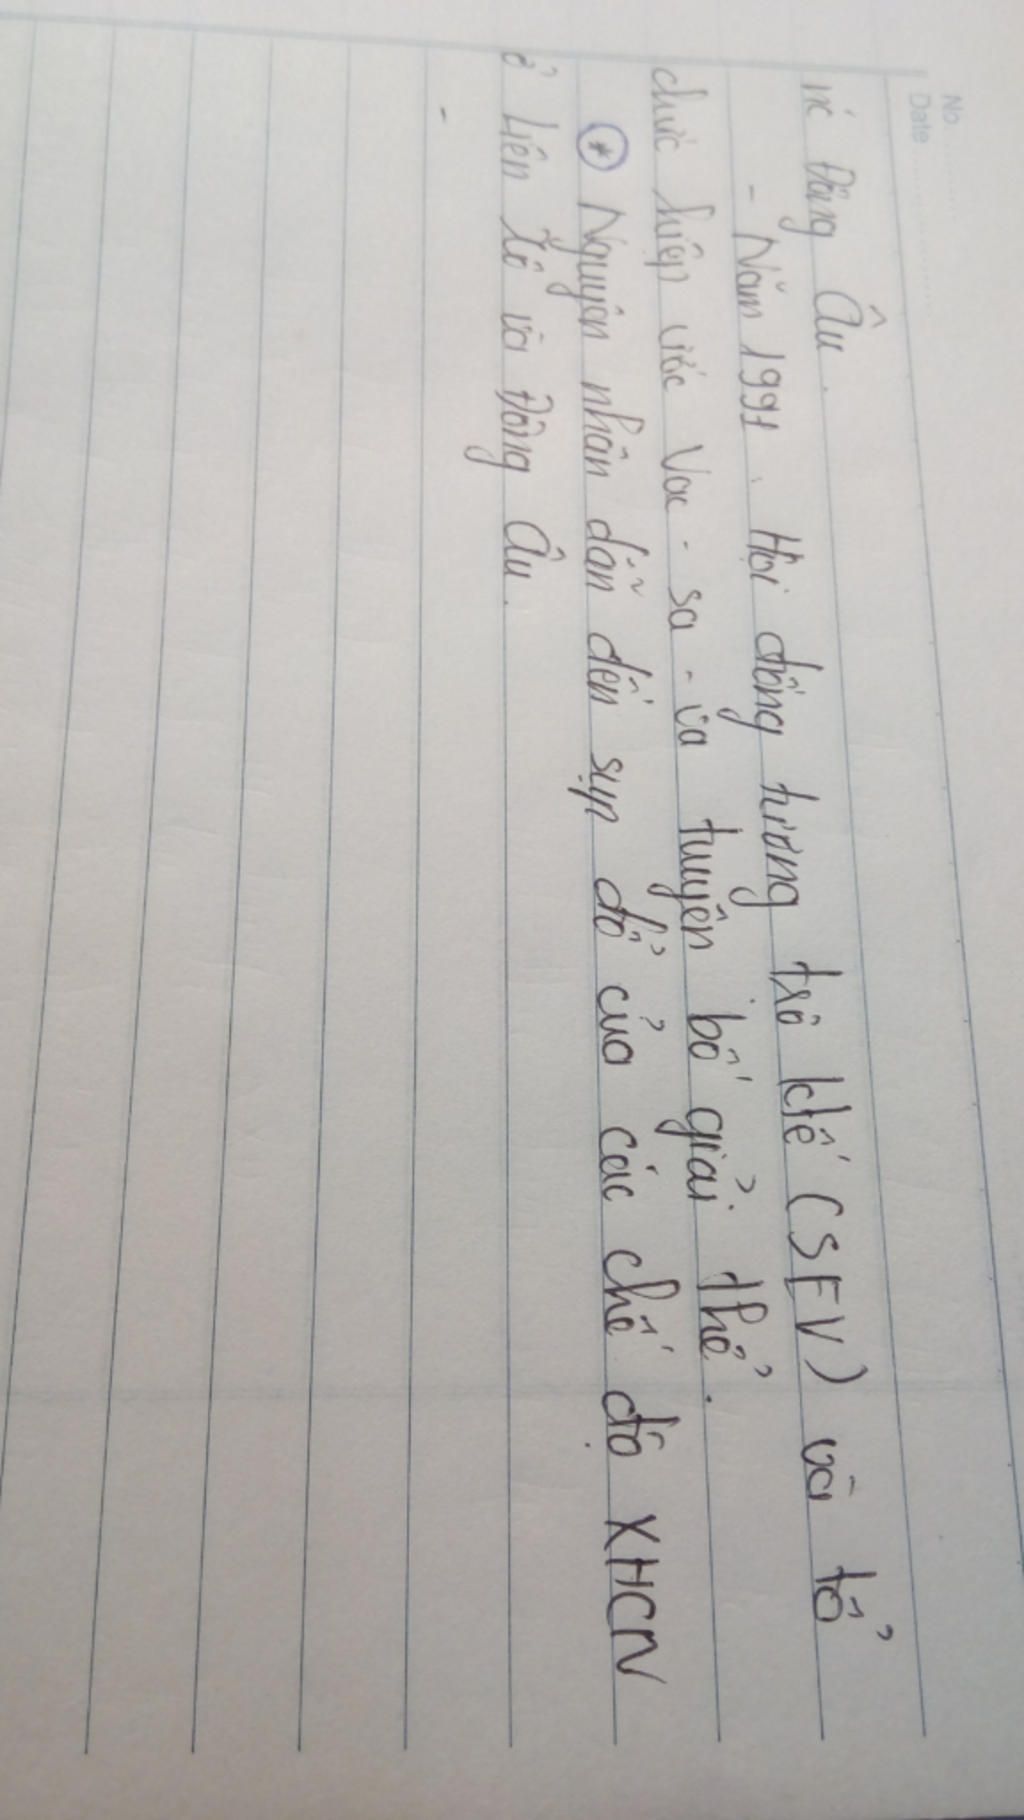 No.
Date
nc Đông Âu.
- Năm 1991, Hội đồng tương trợ ktế (SEV) và tổ
chức hiệp ước Vac - sa - va tuyên bố giải thể.
* Nguyên nhân dẫn đến sụp đổ của các chế độ XHCN
ở Liên Xô và Đông Âu.
-